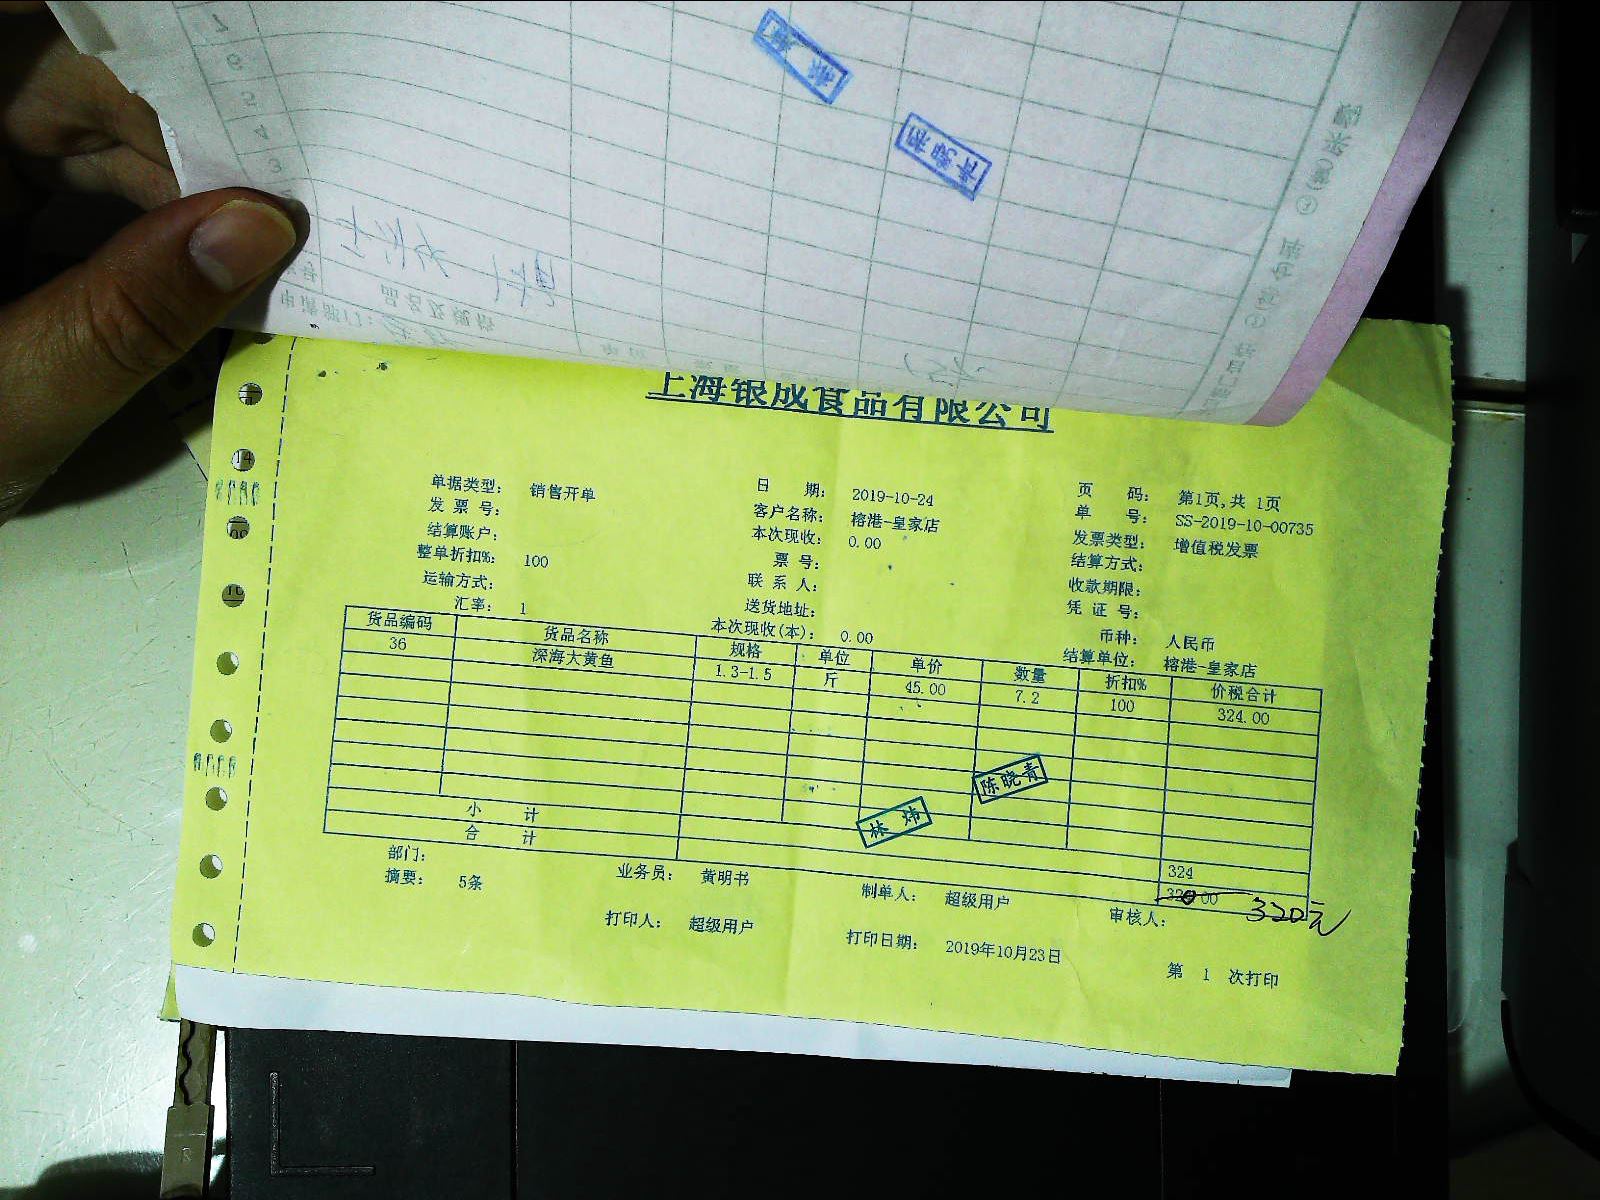 7
6
5
4
3
申请部门：
品名及规格
上海银成食品有限公司
单据类型： 销售开单 日 期： 2019-10-24 页 码： 第1页,共 1页
发 票 号： 客户名称： 榕港-皇家店 单 号： SS-2019-10-00735
结算账户： 本次现收： 0.00 发票类型： 增值税发票
整单折扣%： 100 票 号： 结算方式：
运输方式： 联 系 人： 收款期限：
汇率： 1 送货地址： 凭 证 号：
本次现收(本)： 0.00 币种： 人民币
结算单位： 榕港-皇家店
货品编码 货品名称 规格 单位 单价 数量 折扣% 价税合计
36 深海大黄鱼 1.3-1.5 斤 45.00 7.2 100 324.00
陈晓青
林炜
小 计 324
合 计 320元
部门： 业务员： 黄明书 制单人： 超级用户 审核人：
摘要： 5条
打印人： 超级用户 打印日期： 2019年10月23日 第 1 次打印